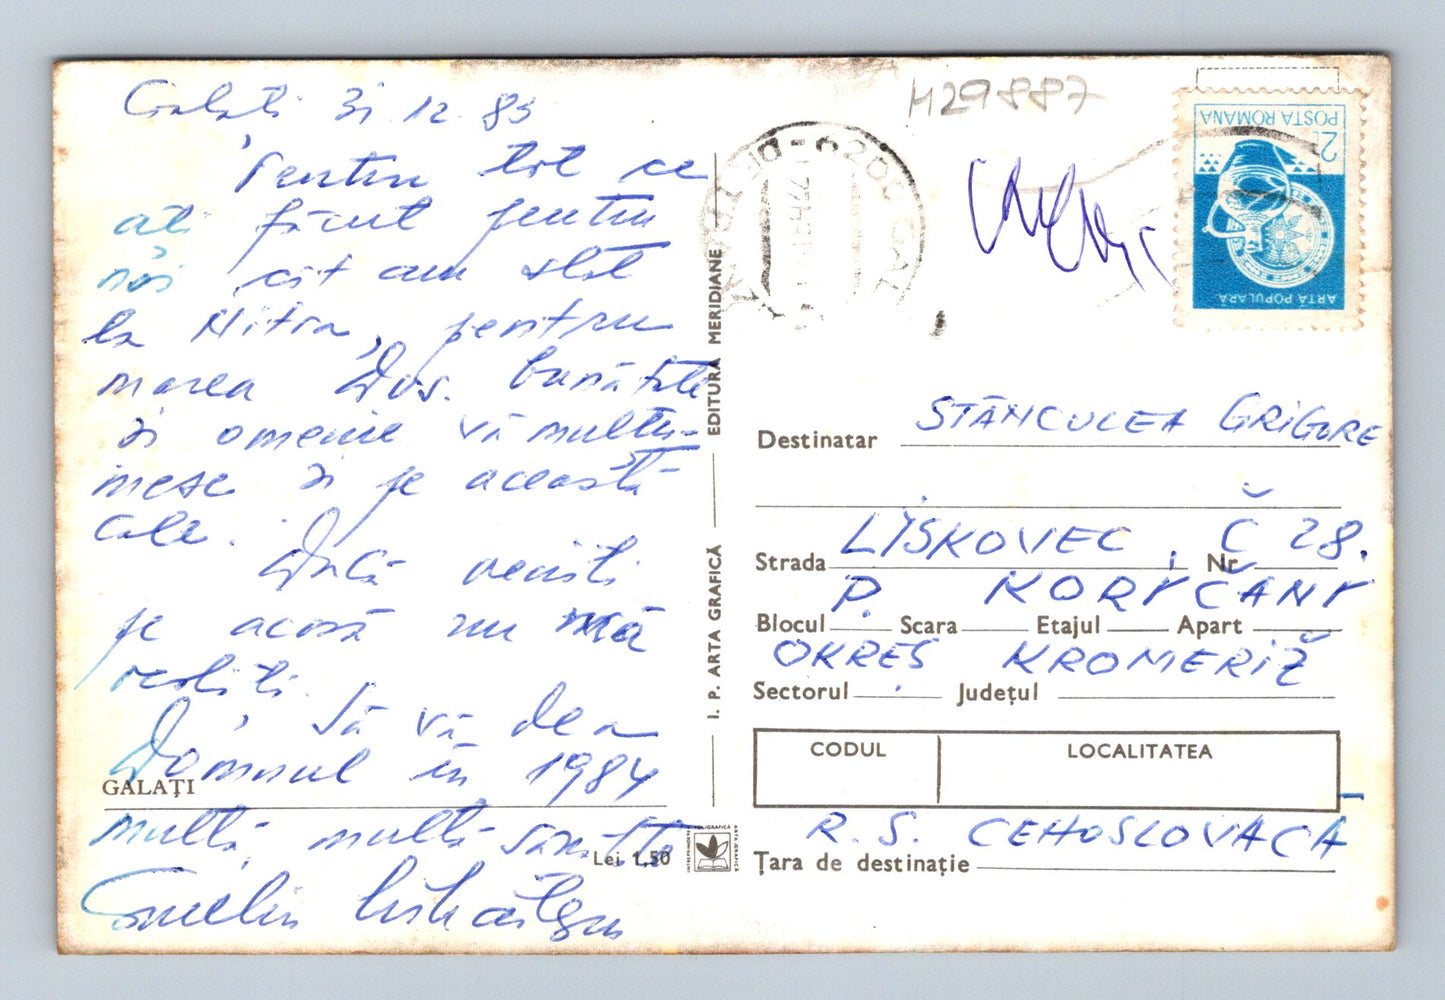 Galați 31 12 83
Pentru tot ce
ați făcut pentru
noi cît am stat
la Nitra, pentru
marea Dvs. bunătate
și omenie vă mulțu-
mesc și pe această
cale.
Dacă veniți
pe acasă nu mă
ocoliți.
Să vă dea
Domnul în 1984
GALAȚI
multă, multă sănătate
Lei 1,50
I. P. ARTA GRAFICĂ
EDITURA MERIDIANE
INTREPRINDEREA POLIGRAFICA ARTA GRAFICA
H29887
6200 GAL
POSTA ROMANA
2L
ARTĂ POPULARĂ
Destinatar STÂNCULEA GRIGORE
Strada LÍSKOVEC, Nr Č 28.
P. KORYČANY
Blocul Scara Etajul Apart
OKRES KROMERIŽ
Sectorul Județul
CODUL LOCALITATEA
R. S. CEHOSLOVACA
Țara de destinație